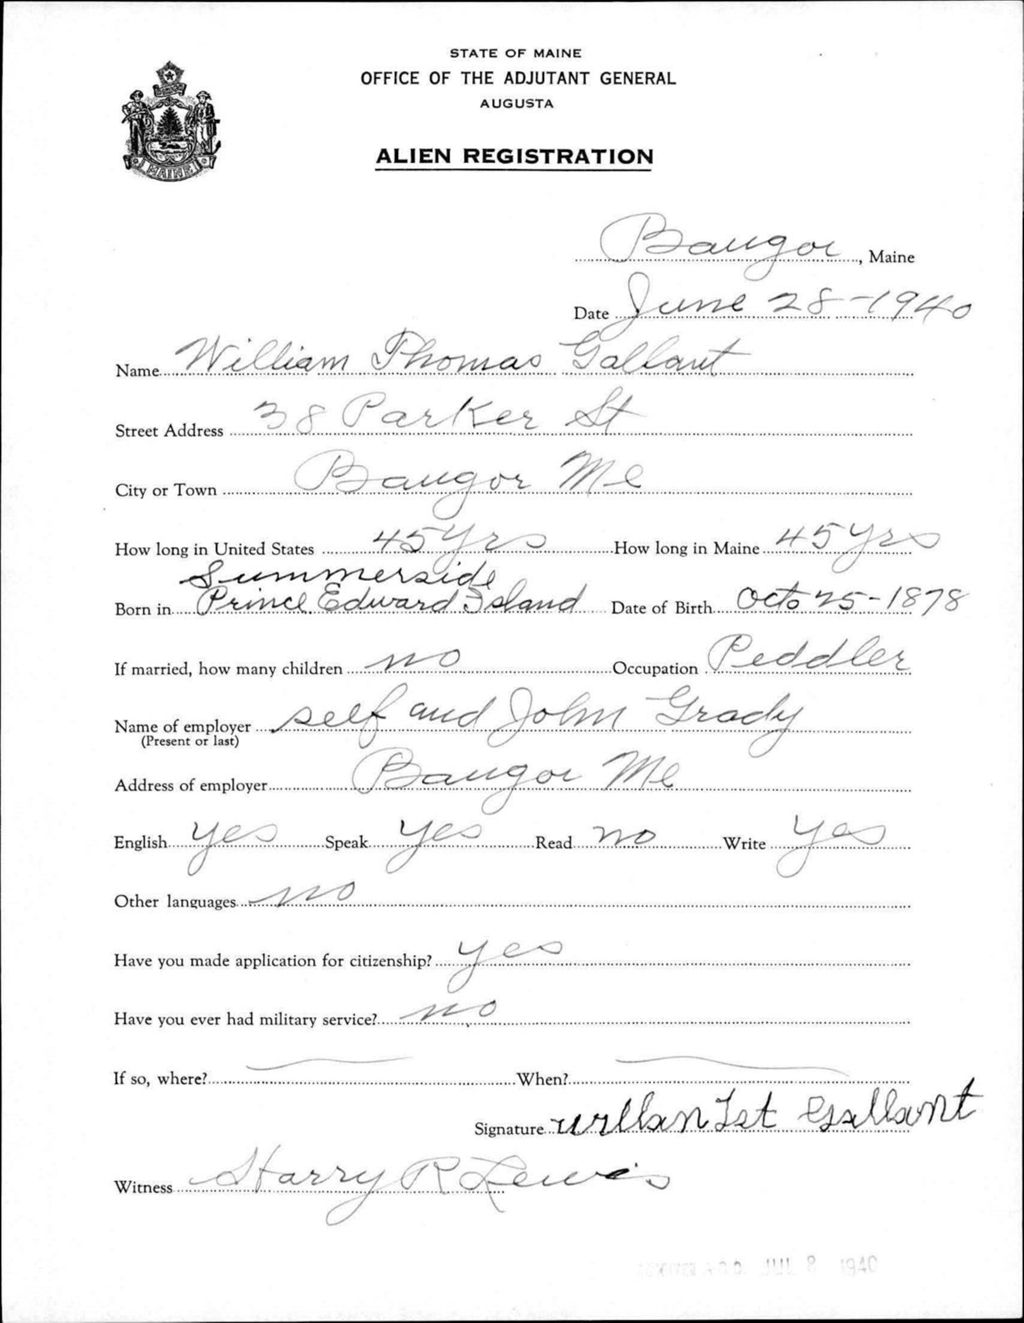 STATE OF MAINE
OFFICE OF THE ADJUTANT GENERAL
AUGUSTA
ALIEN REGISTRATION
MAINE
Bangor, Maine
Date June 28-1940
Name William Thomas Gallant
Street Address 38 Parker St
City or Town Bangor Me
How long in United States 45 Yrs How long in Maine 45 Yrs
Summerside
Born in Prince Edward Island Date of Birth Oct. 25-1878
If married, how many children no Occupation Peddler
Name of employer self and John Grady
(Present or last)
Address of employer Bangor Me
English yes Speak yes Read no Write yes
Other languages no
Have you made application for citizenship? yes
Have you ever had military service? no
If so, where? When?
Signature Gallant
Witness Harry R Lewis
JUL 8 1940